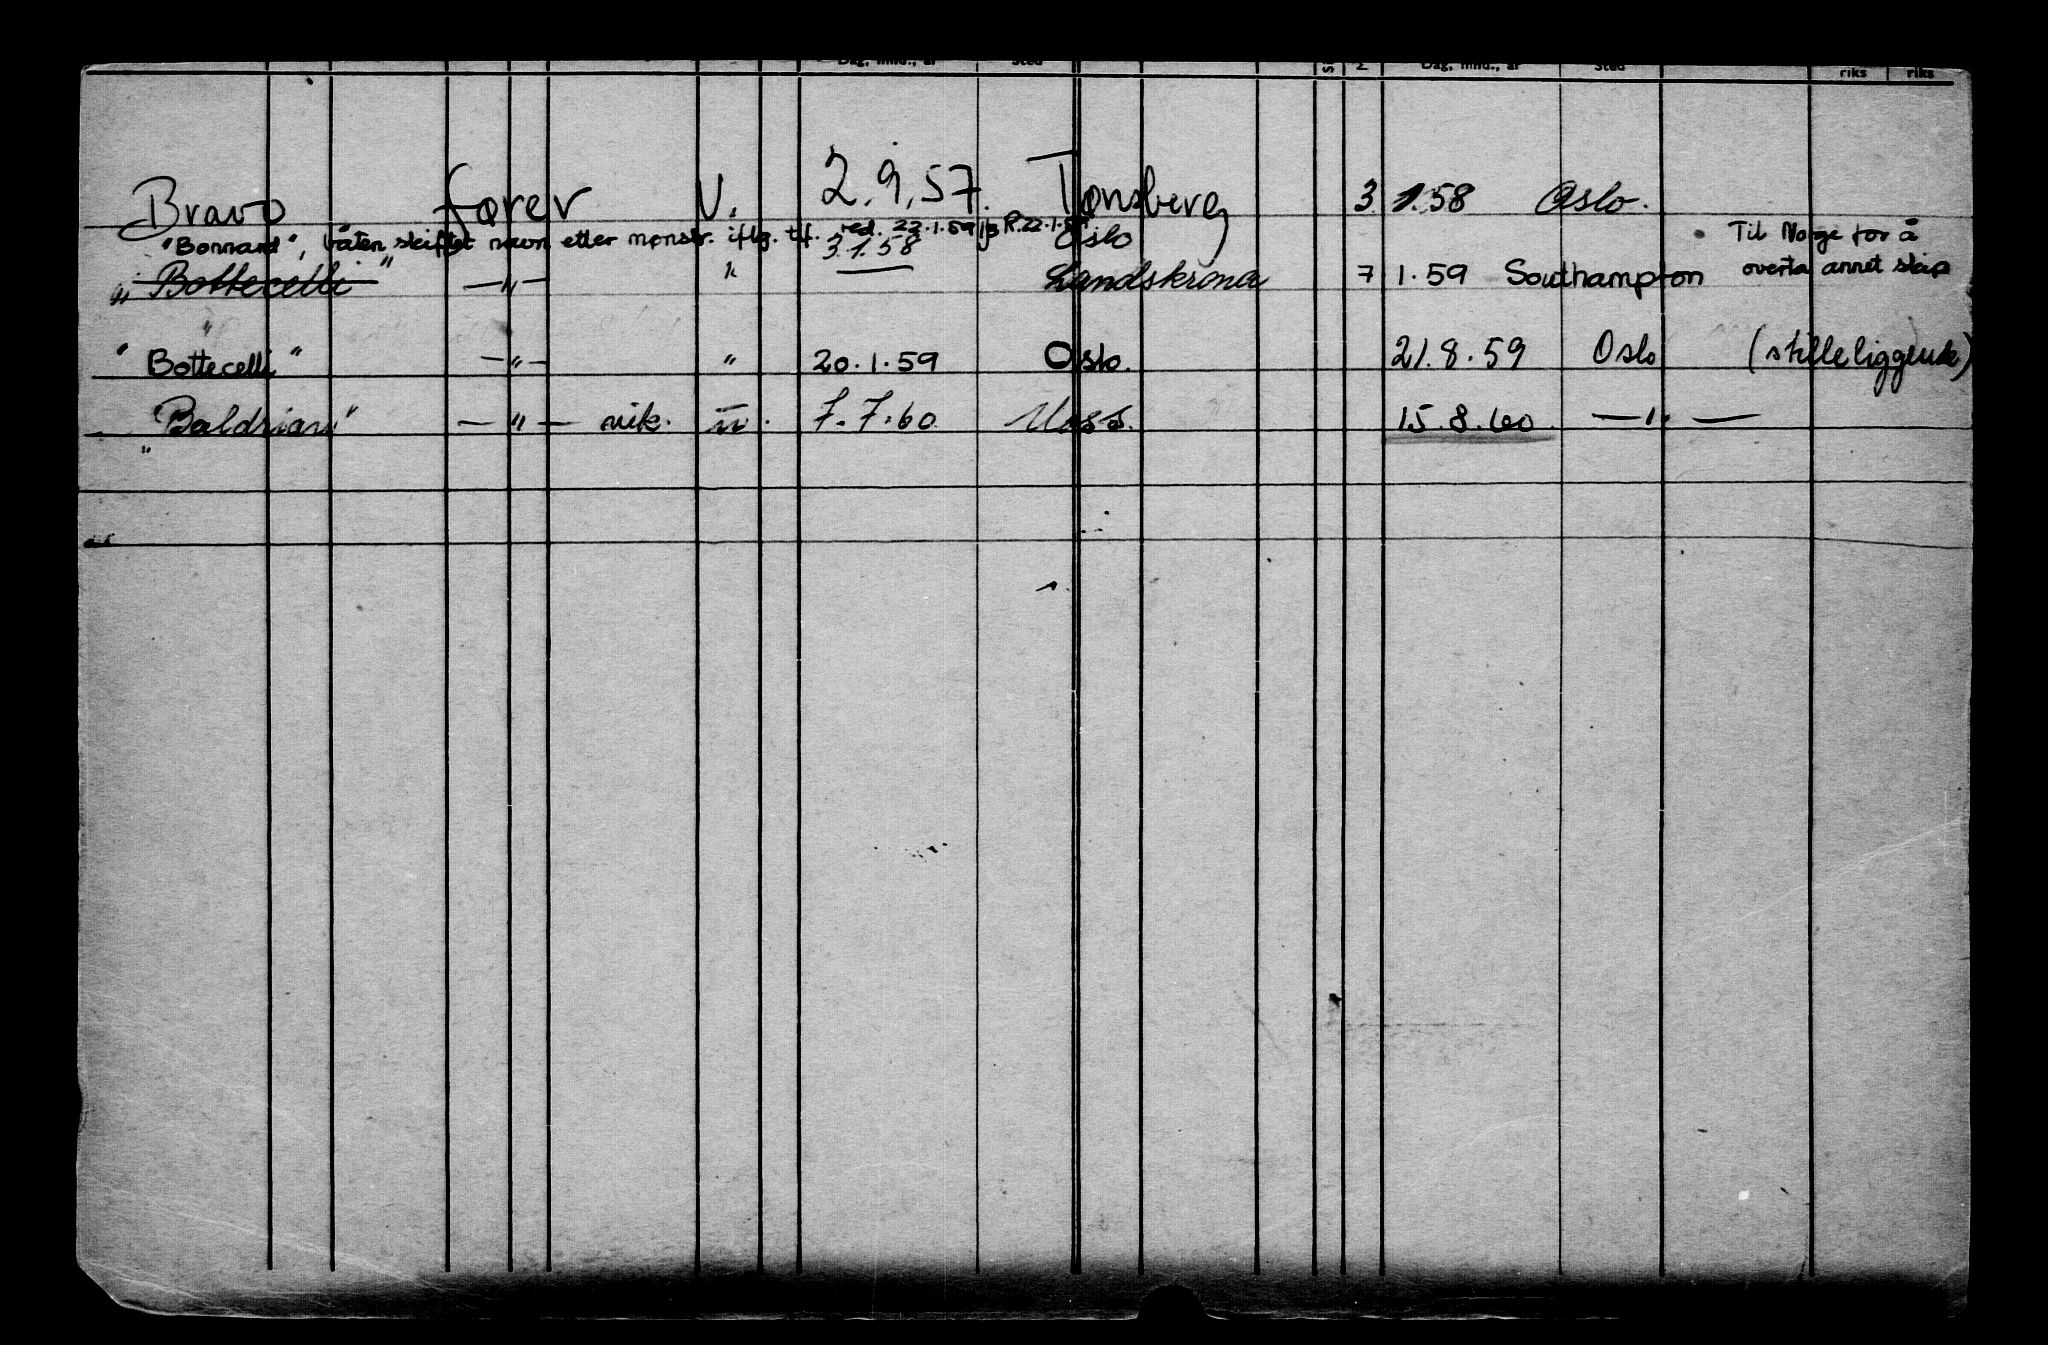 Dag, mnd., år Sted Dag, mnd., år Sted riks riks
Bravo fører U. 2.9.57. Tønsberg 3 1.58 Oslo.
"Bonnard", båten skiftet navn etter mønstr. iflg. tlf. red. 22.1.59 R.22.1.59
3.1.58 Oslo Til Norge for å
"Bottecelli" —"— " Landskrona 7 1.59 Southampton overta annet skip
"Bottecelli" —"— " 20.1.59 Oslo. 21.8.59 Oslo (stilleliggende)
"Baldrian" —"— vik. " 7.7.60 Moss. 15.8.60. —"—